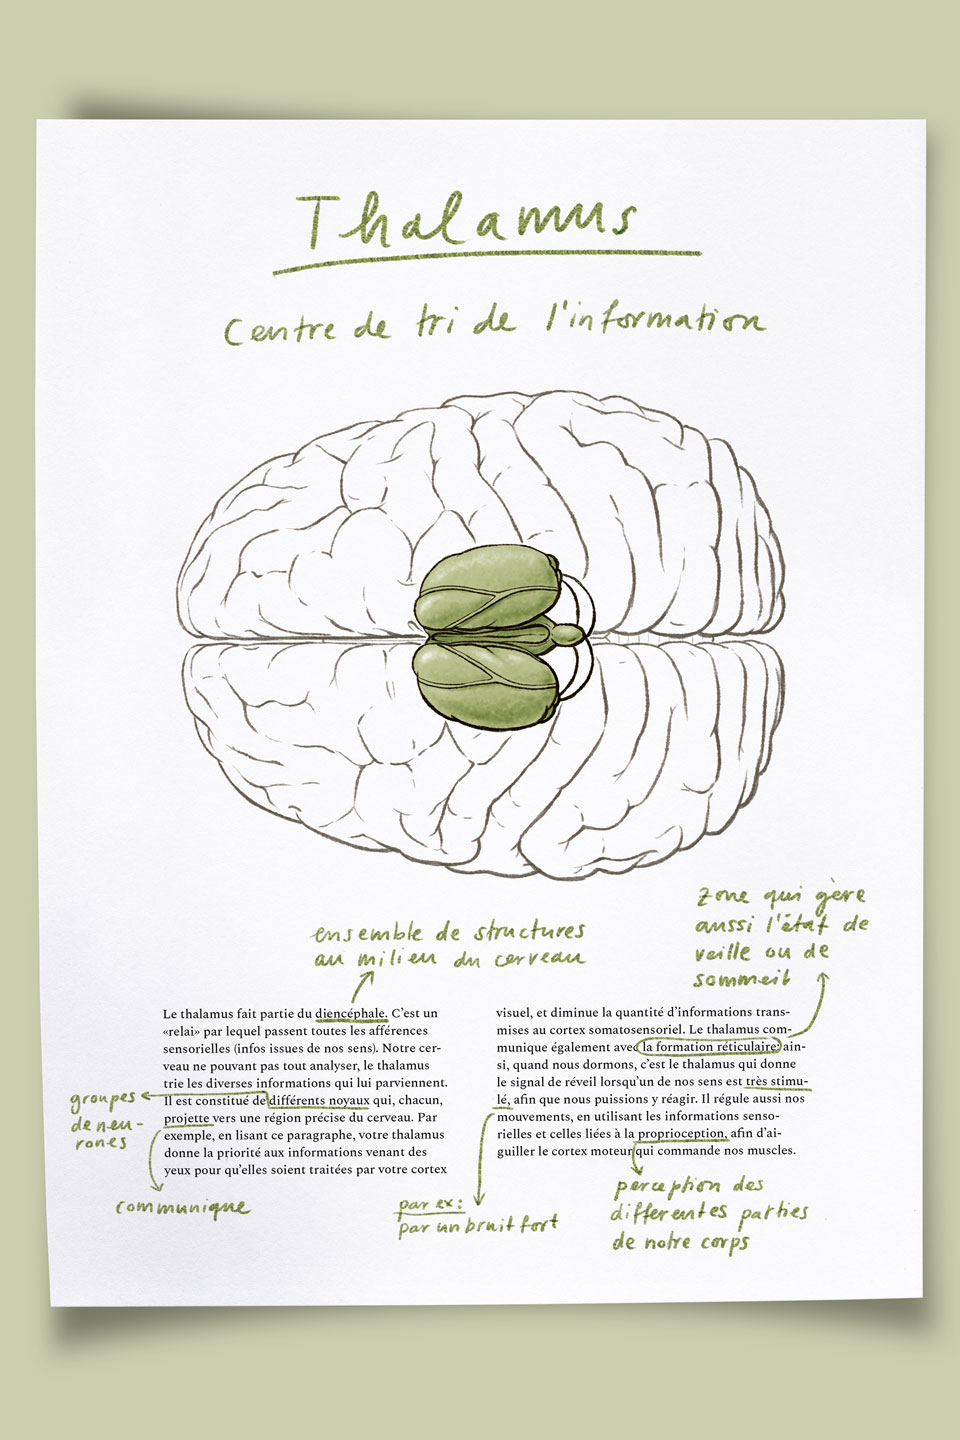 Thalamus
Centre de tri de l'information
ensemble de structures
au milieu du cerveau
zone qui gère
aussi l'état de
veille ou de
sommeil
Le thalamus fait partie du diencéphale. C'est un
«relai» par lequel passent toutes les afférences
sensorielles (infos issues de nos sens). Notre cer-
veau ne pouvant pas tout analyser, le thalamus
trie les diverses informations qui lui parviennent.
Il est constitué de différents noyaux qui, chacun,
projette vers une région précise du cerveau. Par
exemple, en lisant ce paragraphe, votre thalamus
donne la priorité aux informations venant des
yeux pour qu'elles soient traitées par votre cortex
visuel, et diminue la quantité d'informations trans-
mises au cortex somatosensoriel. Le thalamus com-
munique également avec la formation réticulaire: ain-
si, quand nous dormons, c'est le thalamus qui donne
le signal de réveil lorsqu'un de nos sens est très stimu-
lé, afin que nous puissions y réagir. Il régule aussi nos
mouvements, en utilisant les informations senso-
rielles et celles liées à la proprioception, afin d'ai-
guiller le cortex moteur qui commande nos muscles.
groupes
de neu-
rones
communique
par ex:
par un bruit fort
perception des
differentes parties
de notre corps